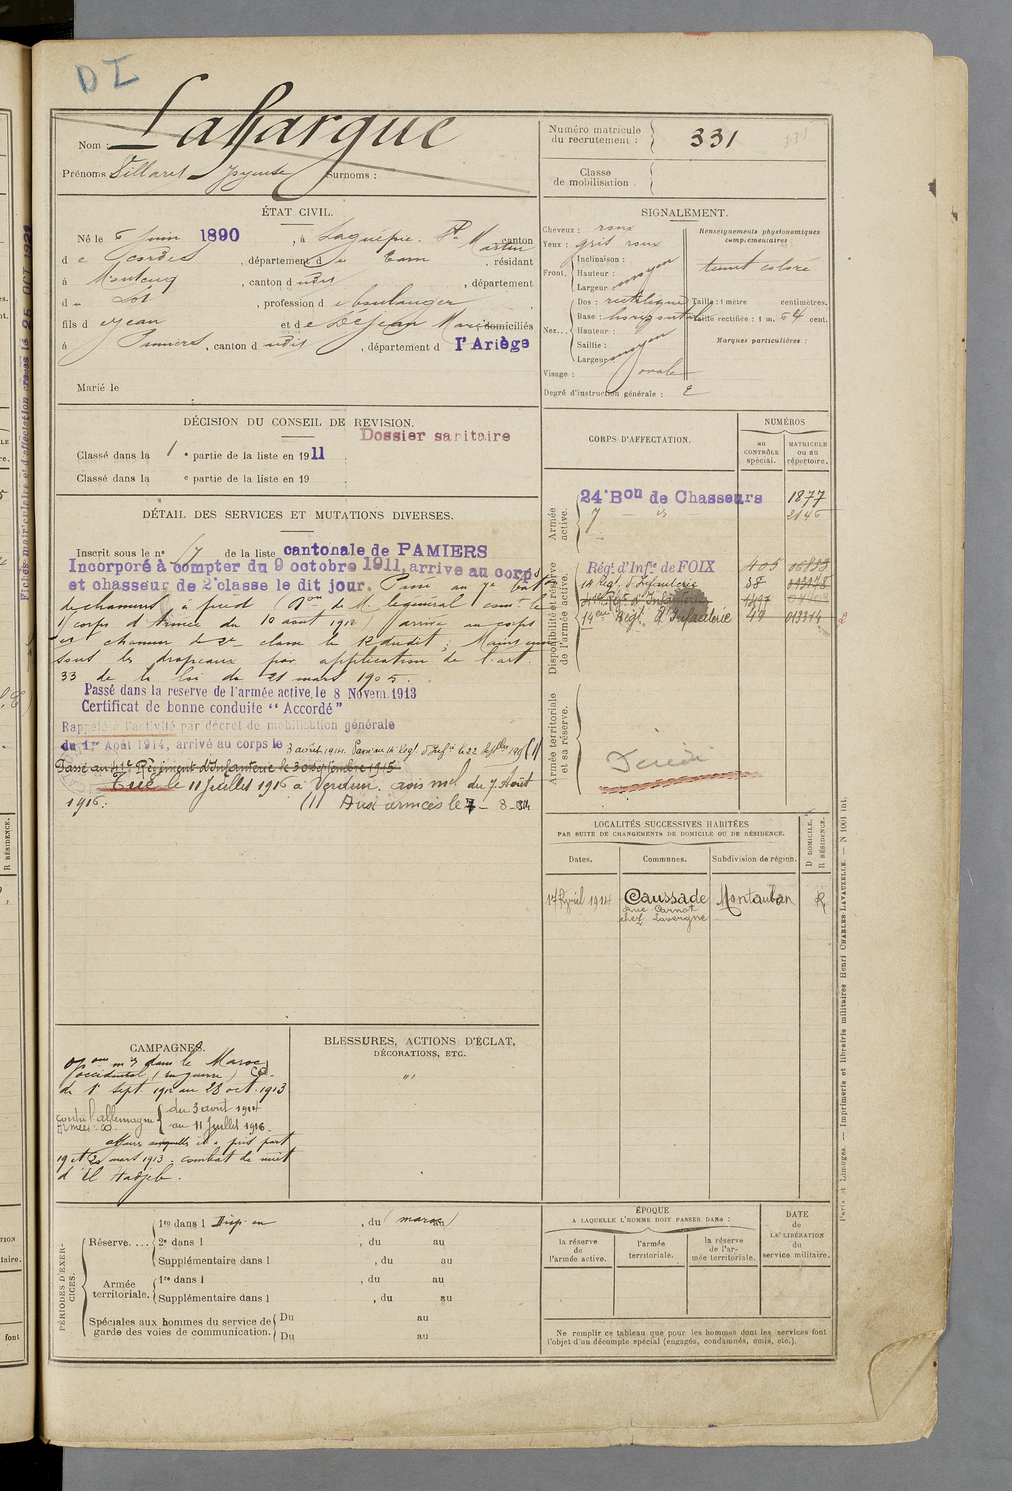 DI
Nom : Lafargue
Prénoms Sillaret Joyeuse Surnoms :
Numéro matricule du recrutement : 331
Classe de mobilisation :
ÉTAT CIVIL.
Né le 6 juin 1890, à Laguépie. St Martin canton
de Cordes, département de Tarn, résidant
à Montcuq, canton d udit, département
du Lot, profession de boulanger
fils de Jean et de Déjean Marie, domiciliés
à Pamiers, canton d udit, département d l'Ariège
Marié le
SIGNALEMENT.
Cheveux : roux
Yeux : gris roux
Front, Inclinaison :
Hauteur : moyen
Largeur :
Nez... Dos : rectiligne
Base : horizontal
Hauteur :
Saillie : moyen
Largeur :
Visage : ovale
Degré d'instruction générale : 2
Renseignements physionomiques complémentaires :
teint coloré
Taille : 1 mètre centimètres.
Taille rectifiée : 1 m. 64 cent.
Marques particulières :
DÉCISION DU CONSEIL DE REVISION.
Dossier sanitaire
Classé dans la 1 e partie de la liste en 1911.
Classé dans la e partie de la liste en 19 .
DÉTAIL DES SERVICES ET MUTATIONS DIVERSES.
Inscrit sous le n° 17 de la liste cantonale de PAMIERS
Incorporé à compter du 9 octobre 1911, arrive au corps
et chasseur de 2e classe le dit jour. Passé au 7e baton
de chasseurs à pied (Don de M. le général comt le
corps d'Armée du 10 aout 1912) arrivé au corps
et chasseur de 2e classe le 12 dudit ; Maintenu
sous les drapeaux par application de l'art.
33 de la loi du 21 mars 1905.
Passé dans la reserve de l'armée active, le 8 Novem. 1913
Certificat de bonne conduite "Accordé"
Rappelé à l'activité par décret de mobilisation générale
du 1er Août 1914, arrivé au corps le 3 août 1914. Passé au 14e Régt d'Infie le 22 (1)
Passé au 41e Régiment d'Infanterie le 30 septembre 1915
Tué le 11 Juillet 1916 à Verdun, avis mel du 7 Août
1916. (1) Aux armées le 7 - 8 - 1914
CORPS D'AFFECTATION.
NUMÉROS
au CONTRÔLE spécial.
MATRICULE ou au répertoire.
Armée active.
24e Bon de Chasseurs 1877
7 - is - 2146
Disponibilité et réserve de l'armée active.
Régt d'Infie de FOIX 405
14 Régt d'Infanterie 38
41e Régt d'Infanterie
14eme Régt d'Infanterie 49 013314
Armée territoriale et sa réserve.
Décédé
LOCALITÉS SUCCESSIVES HABITÉES
PAR SUITE DE CHANGEMENTS DE DOMICILE OU DE RÉSIDENCE.
Dates. Communes. Subdivision de région. D DOMICILE. R RÉSIDENCE.
17 Avril 1914 Caussade Montauban R
rue Carnot
chez Lavergne
CAMPAGNES.
Opons mres dans le Maroc
occidental (en guerre)
du 1er Sept. 1912 au 28 oct. 1913
contre l'allemagne du 3 aout 1914
Armées : au 11 Juillet 1916.
affaires auxquelles il a pris part
19 et 20 mars 1913 : combat de nuit
d'El Hadjeb.
BLESSURES, ACTIONS D'ÉCLAT,
DÉCORATIONS, ETC.
"
PÉRIODES D'EXERCICES.
Réserve.... 1re dans l Disp. en , du (maroc) au
2e dans l , du au
Supplémentaire dans l , du au
Armée territoriale. 1re dans l , du au
Supplémentaire dans l , du au
Spéciales aux hommes du service de garde des voies de communication. Du au
Du au
ÉPOQUE
A LAQUELLE L'HOMME DOIT PASSER DANS :
la réserve de l'armée active.
l'armée territoriale.
la réserve de l'armée territoriale.
DATE de LA LIBÉRATION du service militaire.
Ne remplir ce tableau que pour les hommes dont les services font
l'objet d'un décompte spécial (engagés, condamnés, omis, etc.).
Paris et Limoges. — Imprimerie et librairie militaires Henri CHARLES-LAVAUZELLE. — N 1001 int.